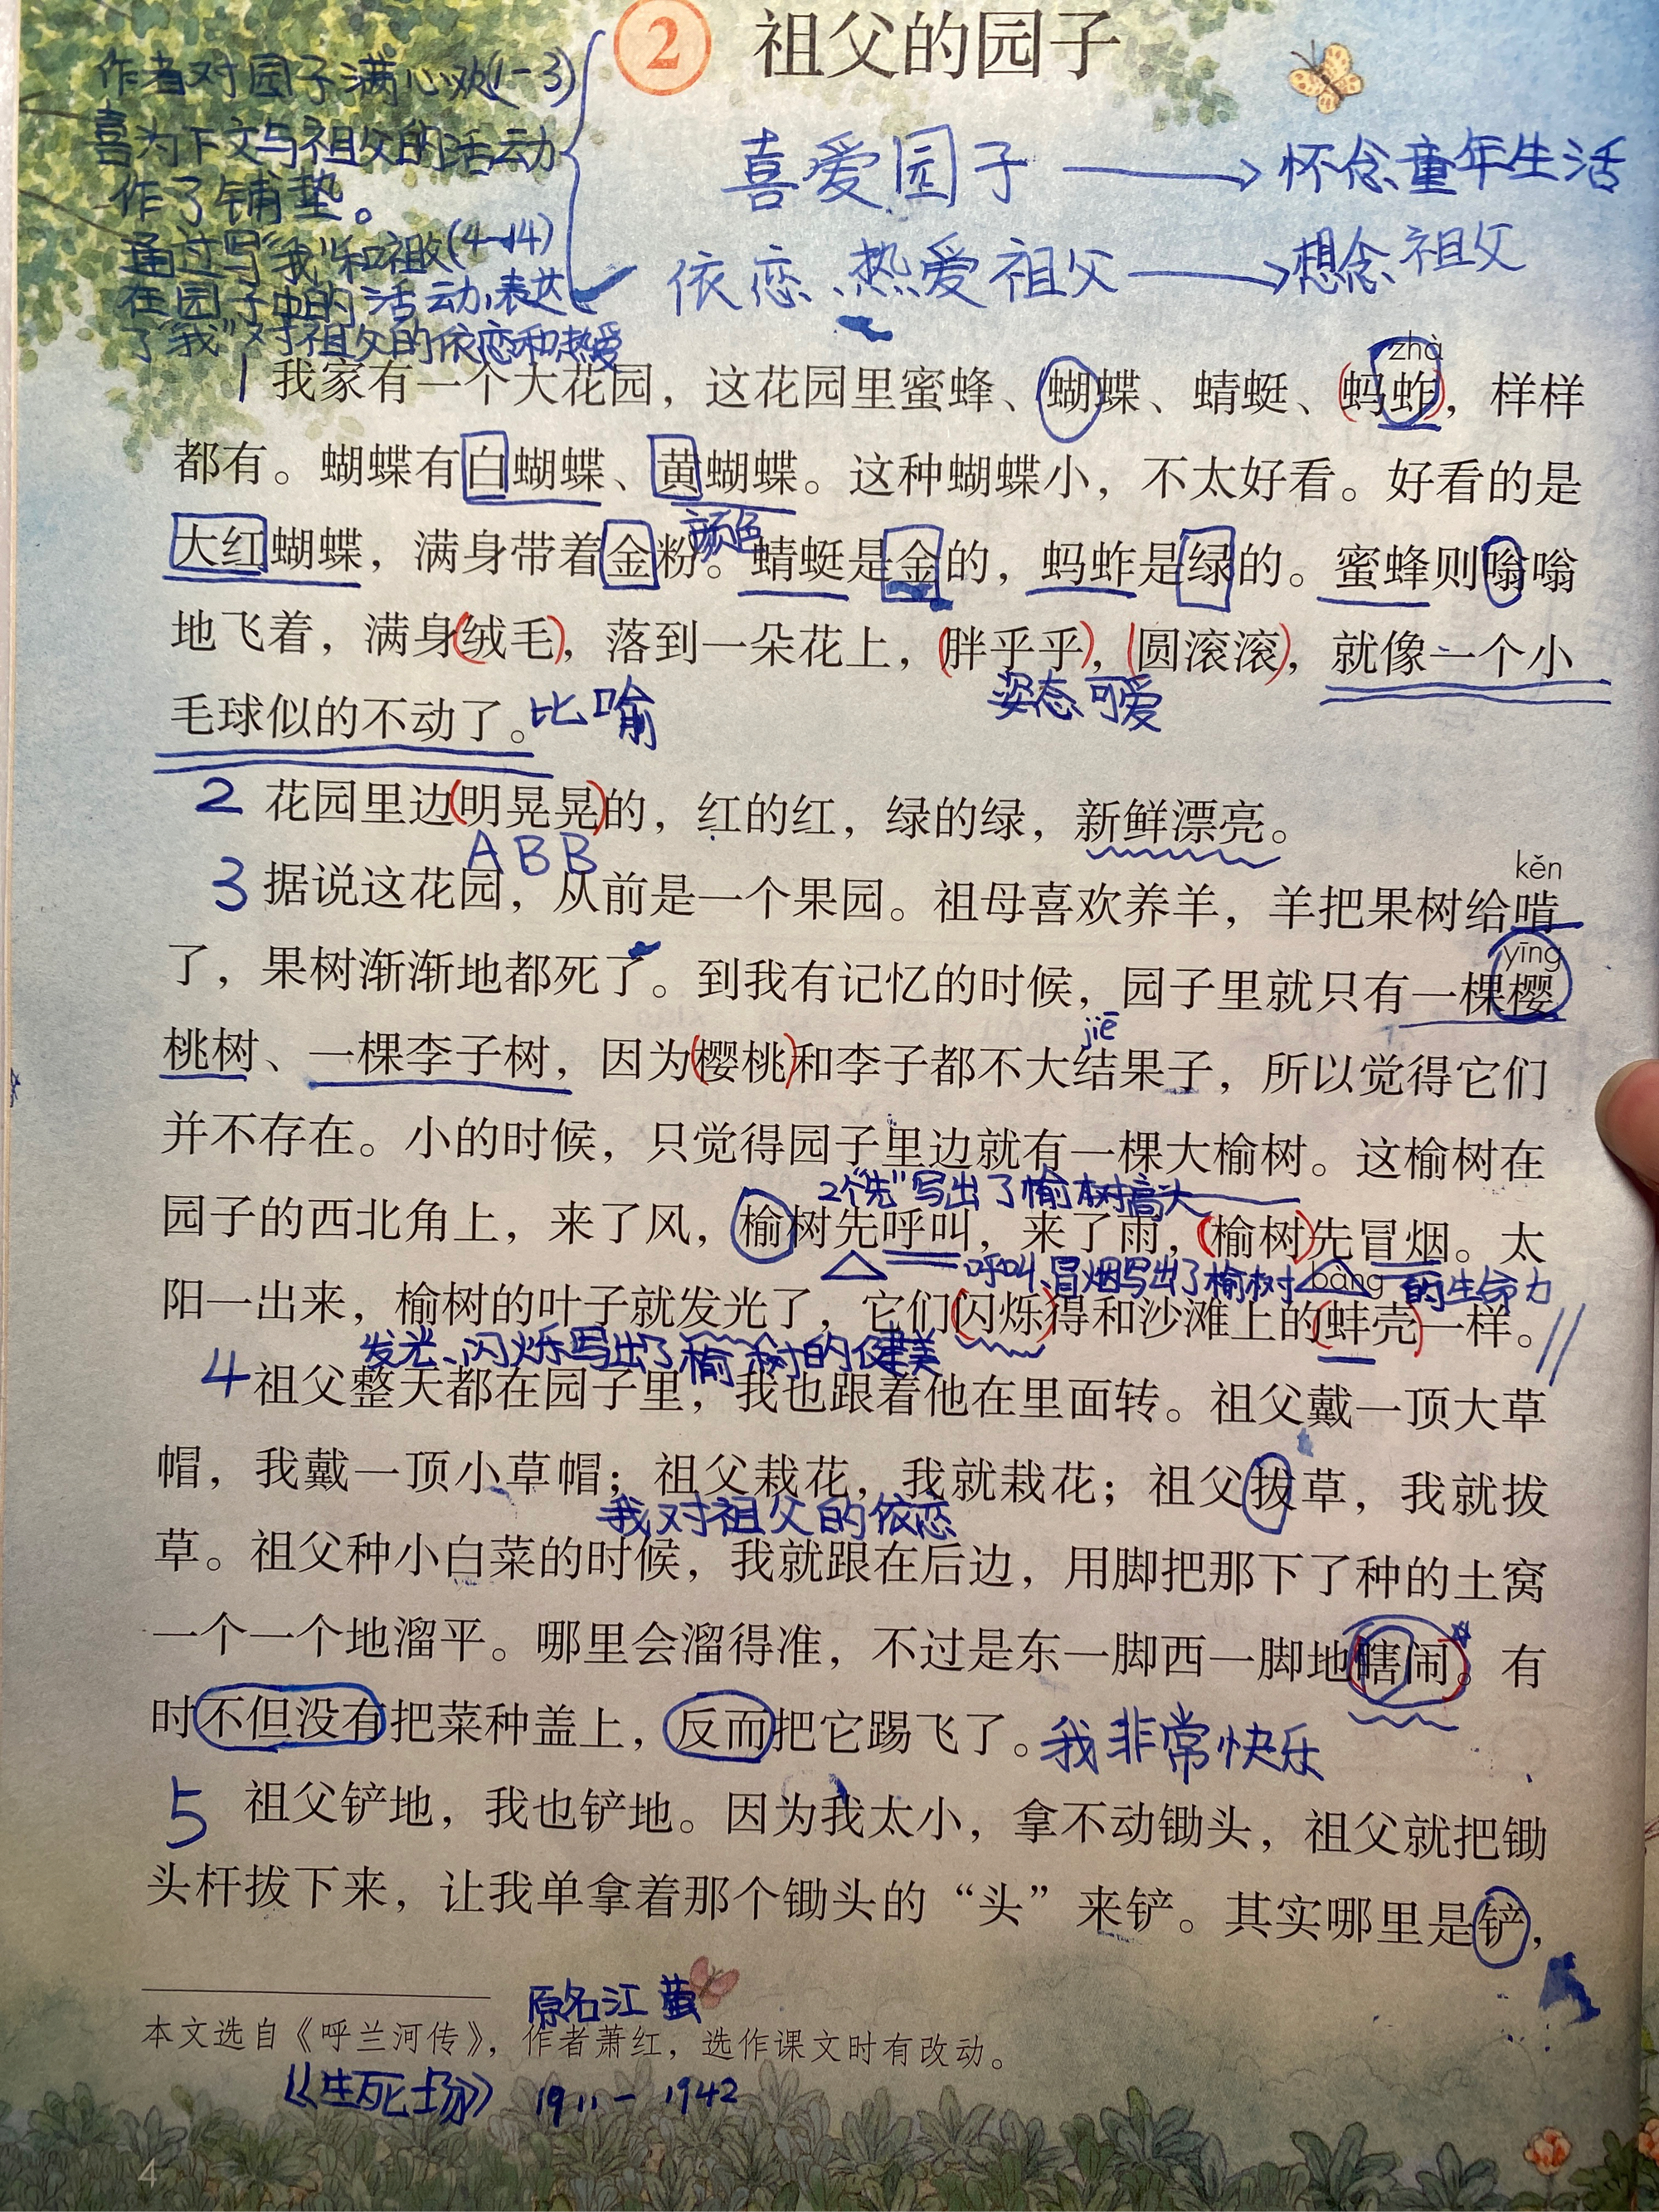 2 祖父的园子
作者对园子满心欢(1-3)
喜为下文与祖父的活动
作了铺垫。
通过写“我”和祖父(4-14)
在园子中的活动,表达
了“我”对祖父的依恋和热爱
喜爱园子 → 怀念童年生活
依恋、热爱祖父 → 想念祖父
zhà
1 我家有一个大花园，这花园里蜜蜂、蝴蝶、蜻蜓、蚂蚱，样样
都有。蝴蝶有白蝴蝶、黄蝴蝶。这种蝴蝶小，不太好看。好看的是
颜色
大红蝴蝶，满身带着金粉。蜻蜓是金的，蚂蚱是绿的。蜜蜂则嗡嗡
地飞着，满身绒毛，落到一朵花上，胖乎乎，圆滚滚，就像一个小
姿态可爱
毛球似的不动了。比喻
2 花园里边明晃晃的，红的红，绿的绿，新鲜漂亮。
ABB
kěn
3 据说这花园，从前是一个果园。祖母喜欢养羊，羊把果树给啃
yīng
了，果树渐渐地都死了。到我有记忆的时候，园子里就只有一棵樱
jiē
桃树、一棵李子树，因为樱桃和李子都不大结果子，所以觉得它们
并不存在。小的时候，只觉得园子里边就有一棵大榆树。这榆树在
2个“先”写出了榆树高大
园子的西北角上，来了风，榆树先呼叫，来了雨，榆树先冒烟。太
呼叫、冒烟写出了榆树的生命力
bàng
阳一出来，榆树的叶子就发光了，它们闪烁得和沙滩上的蚌壳一样。
发光、闪烁写出了榆树的健美
4 祖父整天都在园子里，我也跟着他在里面转。祖父戴一顶大草
帽，我戴一顶小草帽；祖父栽花，我就栽花；祖父拔草，我就拔
我对祖父的依恋
草。祖父种小白菜的时候，我就跟在后边，用脚把那下了种的土窝
一个一个地溜平。哪里会溜得准，不过是东一脚西一脚地瞎闹。有
时不但没有把菜种盖上，反而把它踢飞了。我非常快乐
5 祖父铲地，我也铲地。因为我太小，拿不动锄头，祖父就把锄
头杆拔下来，让我单拿着那个锄头的“头”来铲。其实哪里是铲，
原名江
本文选自《呼兰河传》，作者萧红，选作课文时有改动。
《生死场》 1911-1942
4